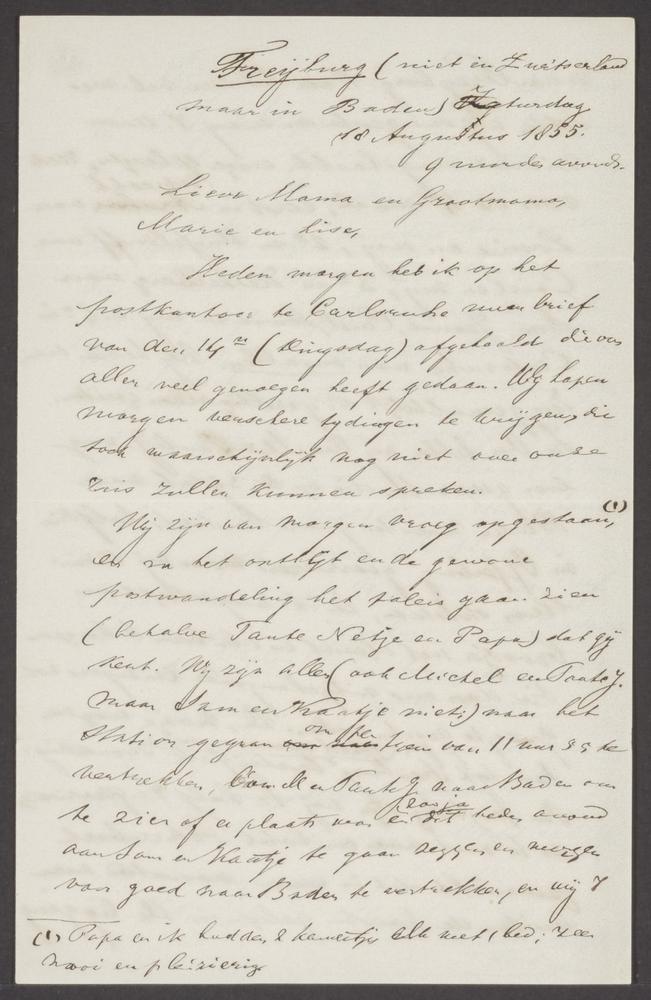 Freyburg (niet in Zwitserland
maar in Baden) Zaturdag
18 Augustus 1855.
9 uur des avonds.
Lieve Mama en Grootmama,
Marie en Lise,
Heden morgen heb ik op het
postkantoor te Carlsruhe uwen brief
van den 14n (dingsdag) afgehaald die ons
allen veel genoegen heeft gedaan. Wij hopen
morgen verschere tydingen te krijgen, die
toch waarschijnlijk nog niet over onze
reis zullen kunnen spreken.
Wij zijn van morgen vroeg opgestaan, (1)
en na het ontbijt en de gewone
postwandeling het paleis gaan zien
(behalve Tante Netje en Papa) dat gij
kent. Wij zijn allen (ook Michel en Tante J.
maar Sam en Kaatje niet) naar het
Station gegaan om per trein van 11 uur 35 te
vertrekken, Oom M en Tante J naar Baden om
te zien of er plaats was en dit heden avond
aan Sam en Kaatje te gaan zeggen en morgen
voor goed naar Baden te vertrekken, en wij 7
(1) Papa en ik hadden 2 kamertjes elk met 1 bed; zeer
mooi en pleizierig